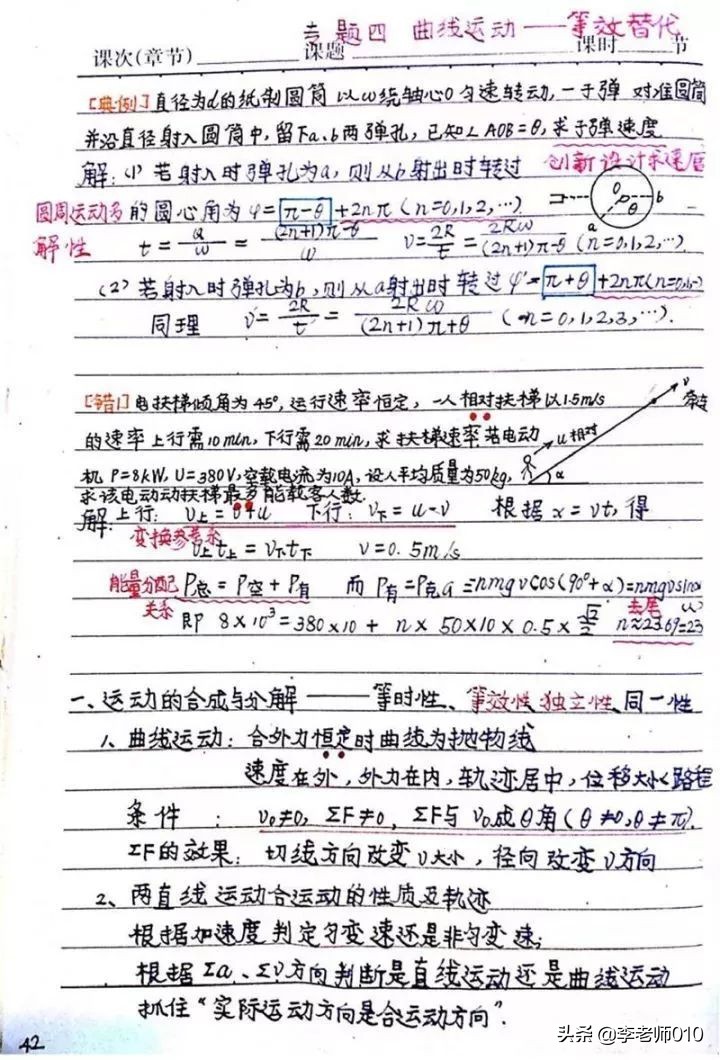 专题四 曲线运动——等效替代
课次(章节) 课题 课时 节
[典例]直径为d的纸制圆筒以ω绕轴心O匀速转动,一子弹对准圆筒
并沿直径射入圆筒中,留下a、b两弹孔,已知∠AOB=θ,求子弹速度
创新设计求速度
解:(1) 若射入时弹孔为a,则从b射出时转过
圆周运动多 的圆心角为 φ=π-θ+2nπ(n=0,1,2,…).
解性 t=α/ω=((2n+1)π-θ)/ω v=2R/t=2Rω/((2n+1)π-θ) (n=0,1,2,…).
O θ b a
(2) 若射入时弹孔为b,则从a射出时转过φ'=π+θ+2nπ(n=0,1…)
同理 v=2R/t=2Rω/((2n+1)π+θ) (n=0,1,2,3,…).
[错1]电扶梯倾角为45°,运行速率恒定,一人相对扶梯以1.5m/s
的速率上行需10min,下行需20min,求扶梯速率.若电动
机P=8kW,U=380V,空载电流为10A,设人平均质量为50kg,
求该电动动扶梯最多能载客人数.
v 牵连
u相对
α
解:上行: v上=v+u 下行: v下=u-v 根据x=vt,得
变换参考系
v上t上=v下t下 v=0.5m/s
能量分配 P总=P空+P有 而P有=P克G=nmgvcos(90°+α)=nmgvsinα
关系 即 8×10³=380×10+n×50×10×0.5×√2/2 n≈23.69=23
去尾
一、运动的合成与分解——等时性、等效性、独立性、同一性
1、曲线运动:合外力恒定时曲线为抛物线
速度在外,外力在内,轨迹居中,位移大小<路程
条件:v₀≠0,ΣF≠0,ΣF与v₀成θ角(θ≠0,θ≠π).
ΣF的效果:切线方向改变v大小,径向改变v方向
2、两直线运动合运动的性质及轨迹
根据加速度判定匀变速还是非匀变速;
根据Σa、Σv方向判断是直线运动还是曲线运动
抓住“实际运动方向是合运动方向”.
42
头条@李老师010